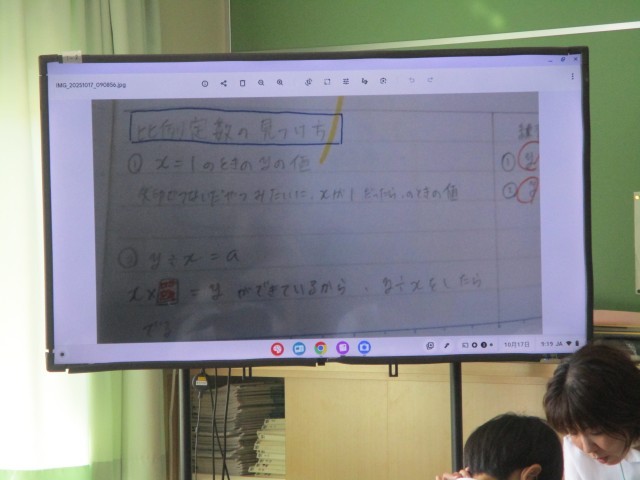 IMG_20251017_090856.jpg
比例定数の見つけ方
① x=1のときのyの値
みたいに、xが1だったら、のときの値
② y÷x=a
x×　=y ができているから、y÷xをしたら
でる
①
②
10月17日 9:19 JA